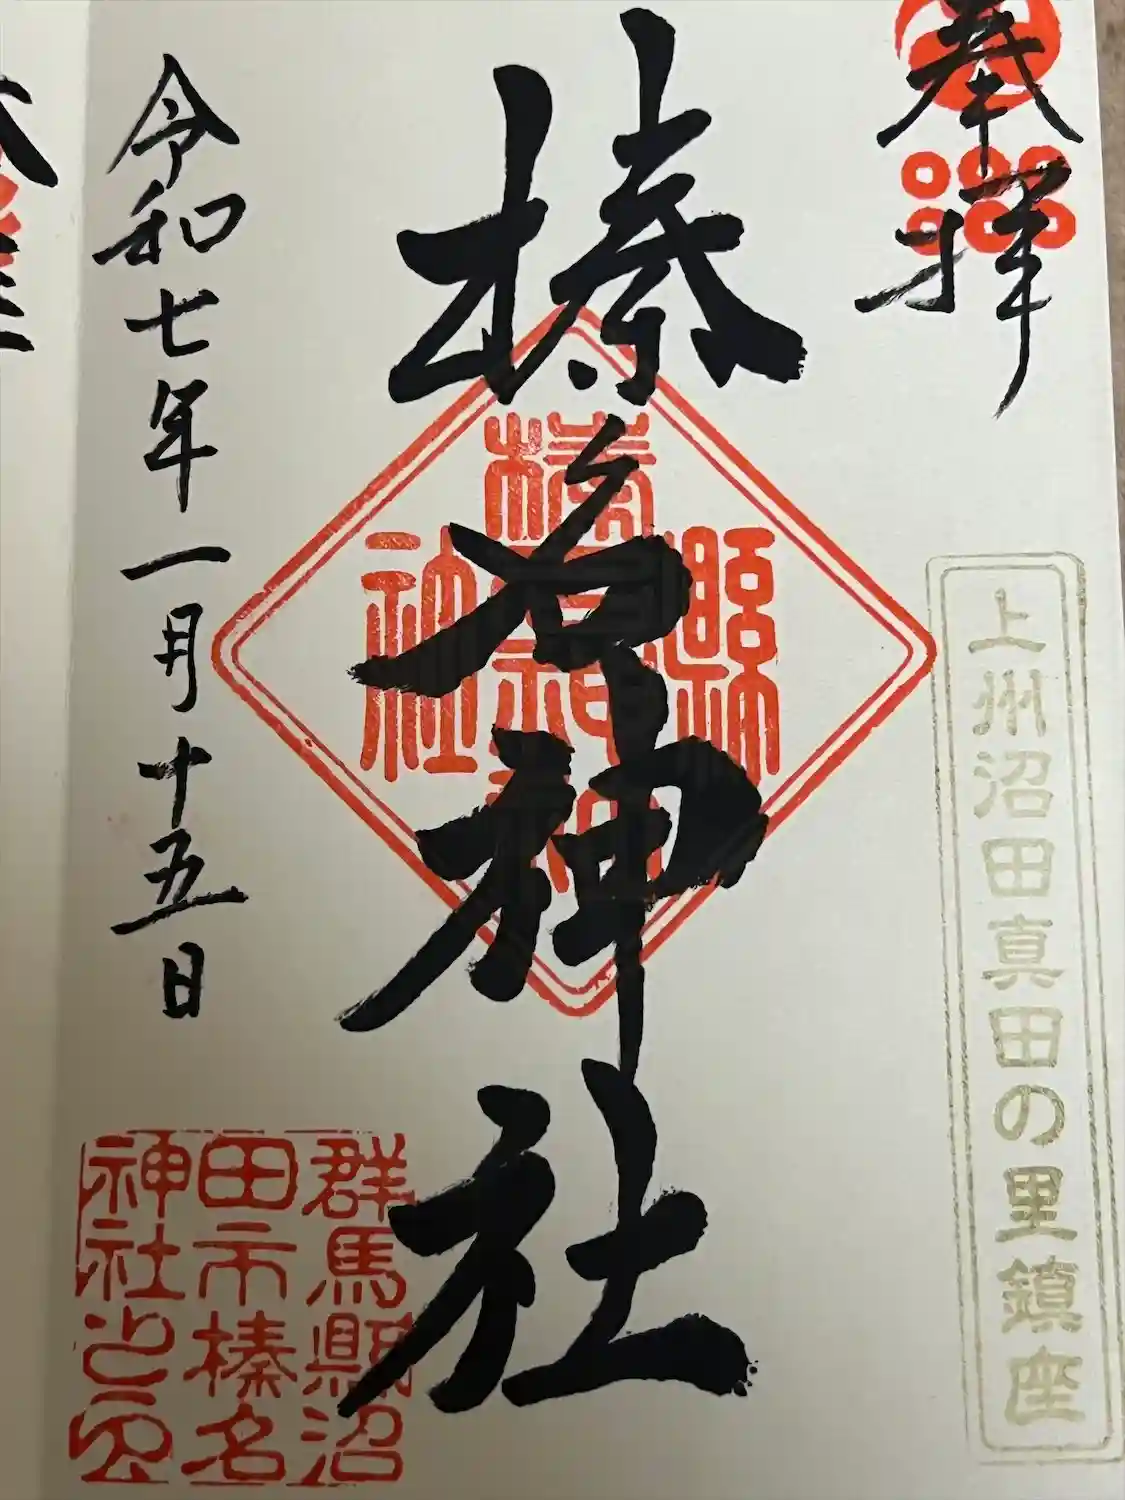 奉拝
上州沼田真田の里鎮座
榛名神社
群馬縣沼
田市榛名
神社之印
令和七年一月十五日